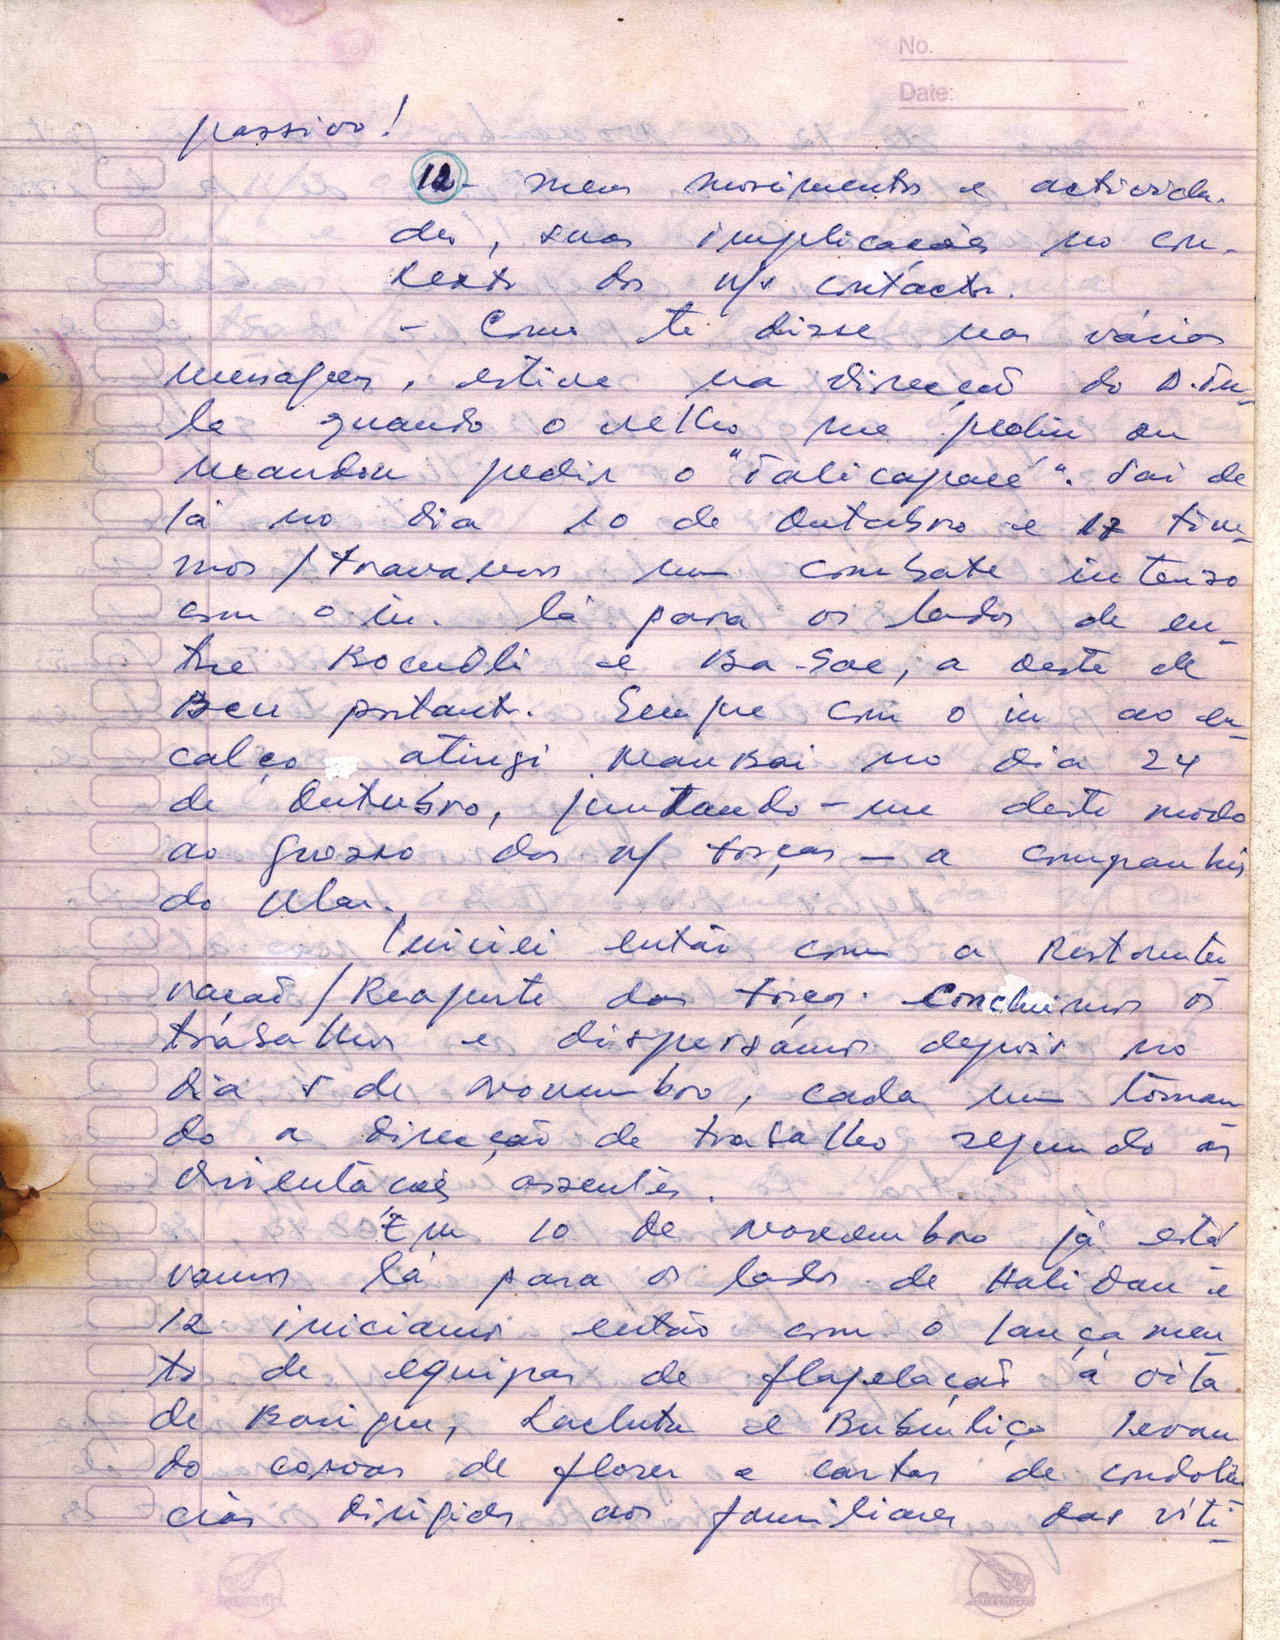 No.
Date:
passivo!
12 - meus movimentos e activida-
des, suas implicações no con-
texto dos n/s contactos.
- Como te disse nas várias
mensagens, estive na direcção do D. Tu-
la quando o velho me pediu ou
mandou pedir o "Talicapacé". Saí de
lá no dia 10 de Outubro e 17 tive-
mos / travamos um combate intenso
com o in. lá para os lados de en-
tre Bocudli e Ba-Sae, a oeste de
Beu portanto. Sempre com o in ao en-
calço atingi MauBai no dia 24
de Outubro, juntando-me deste modo
ao grosso das n/ forças - a companhia
do Ular.
Iniciei então com a Restrutu
ração / Reajuste das forças. Concluimos os
trabalhos e dispersámos depois no
dia 5 de Novembro, cada um toman
do a direcção de trabalho segundo as
orientações assentes.
Em 10 de Novembro já está
vamos lá para os lados de HaliDan e
12 iniciamos então com o lançamen
to de equipas de flagelação à vila
de Bariqui, Lacluta e Bubúliço levan
do coroas de flores e cartas de condolên
cias dirigidas aos familiares das víti-